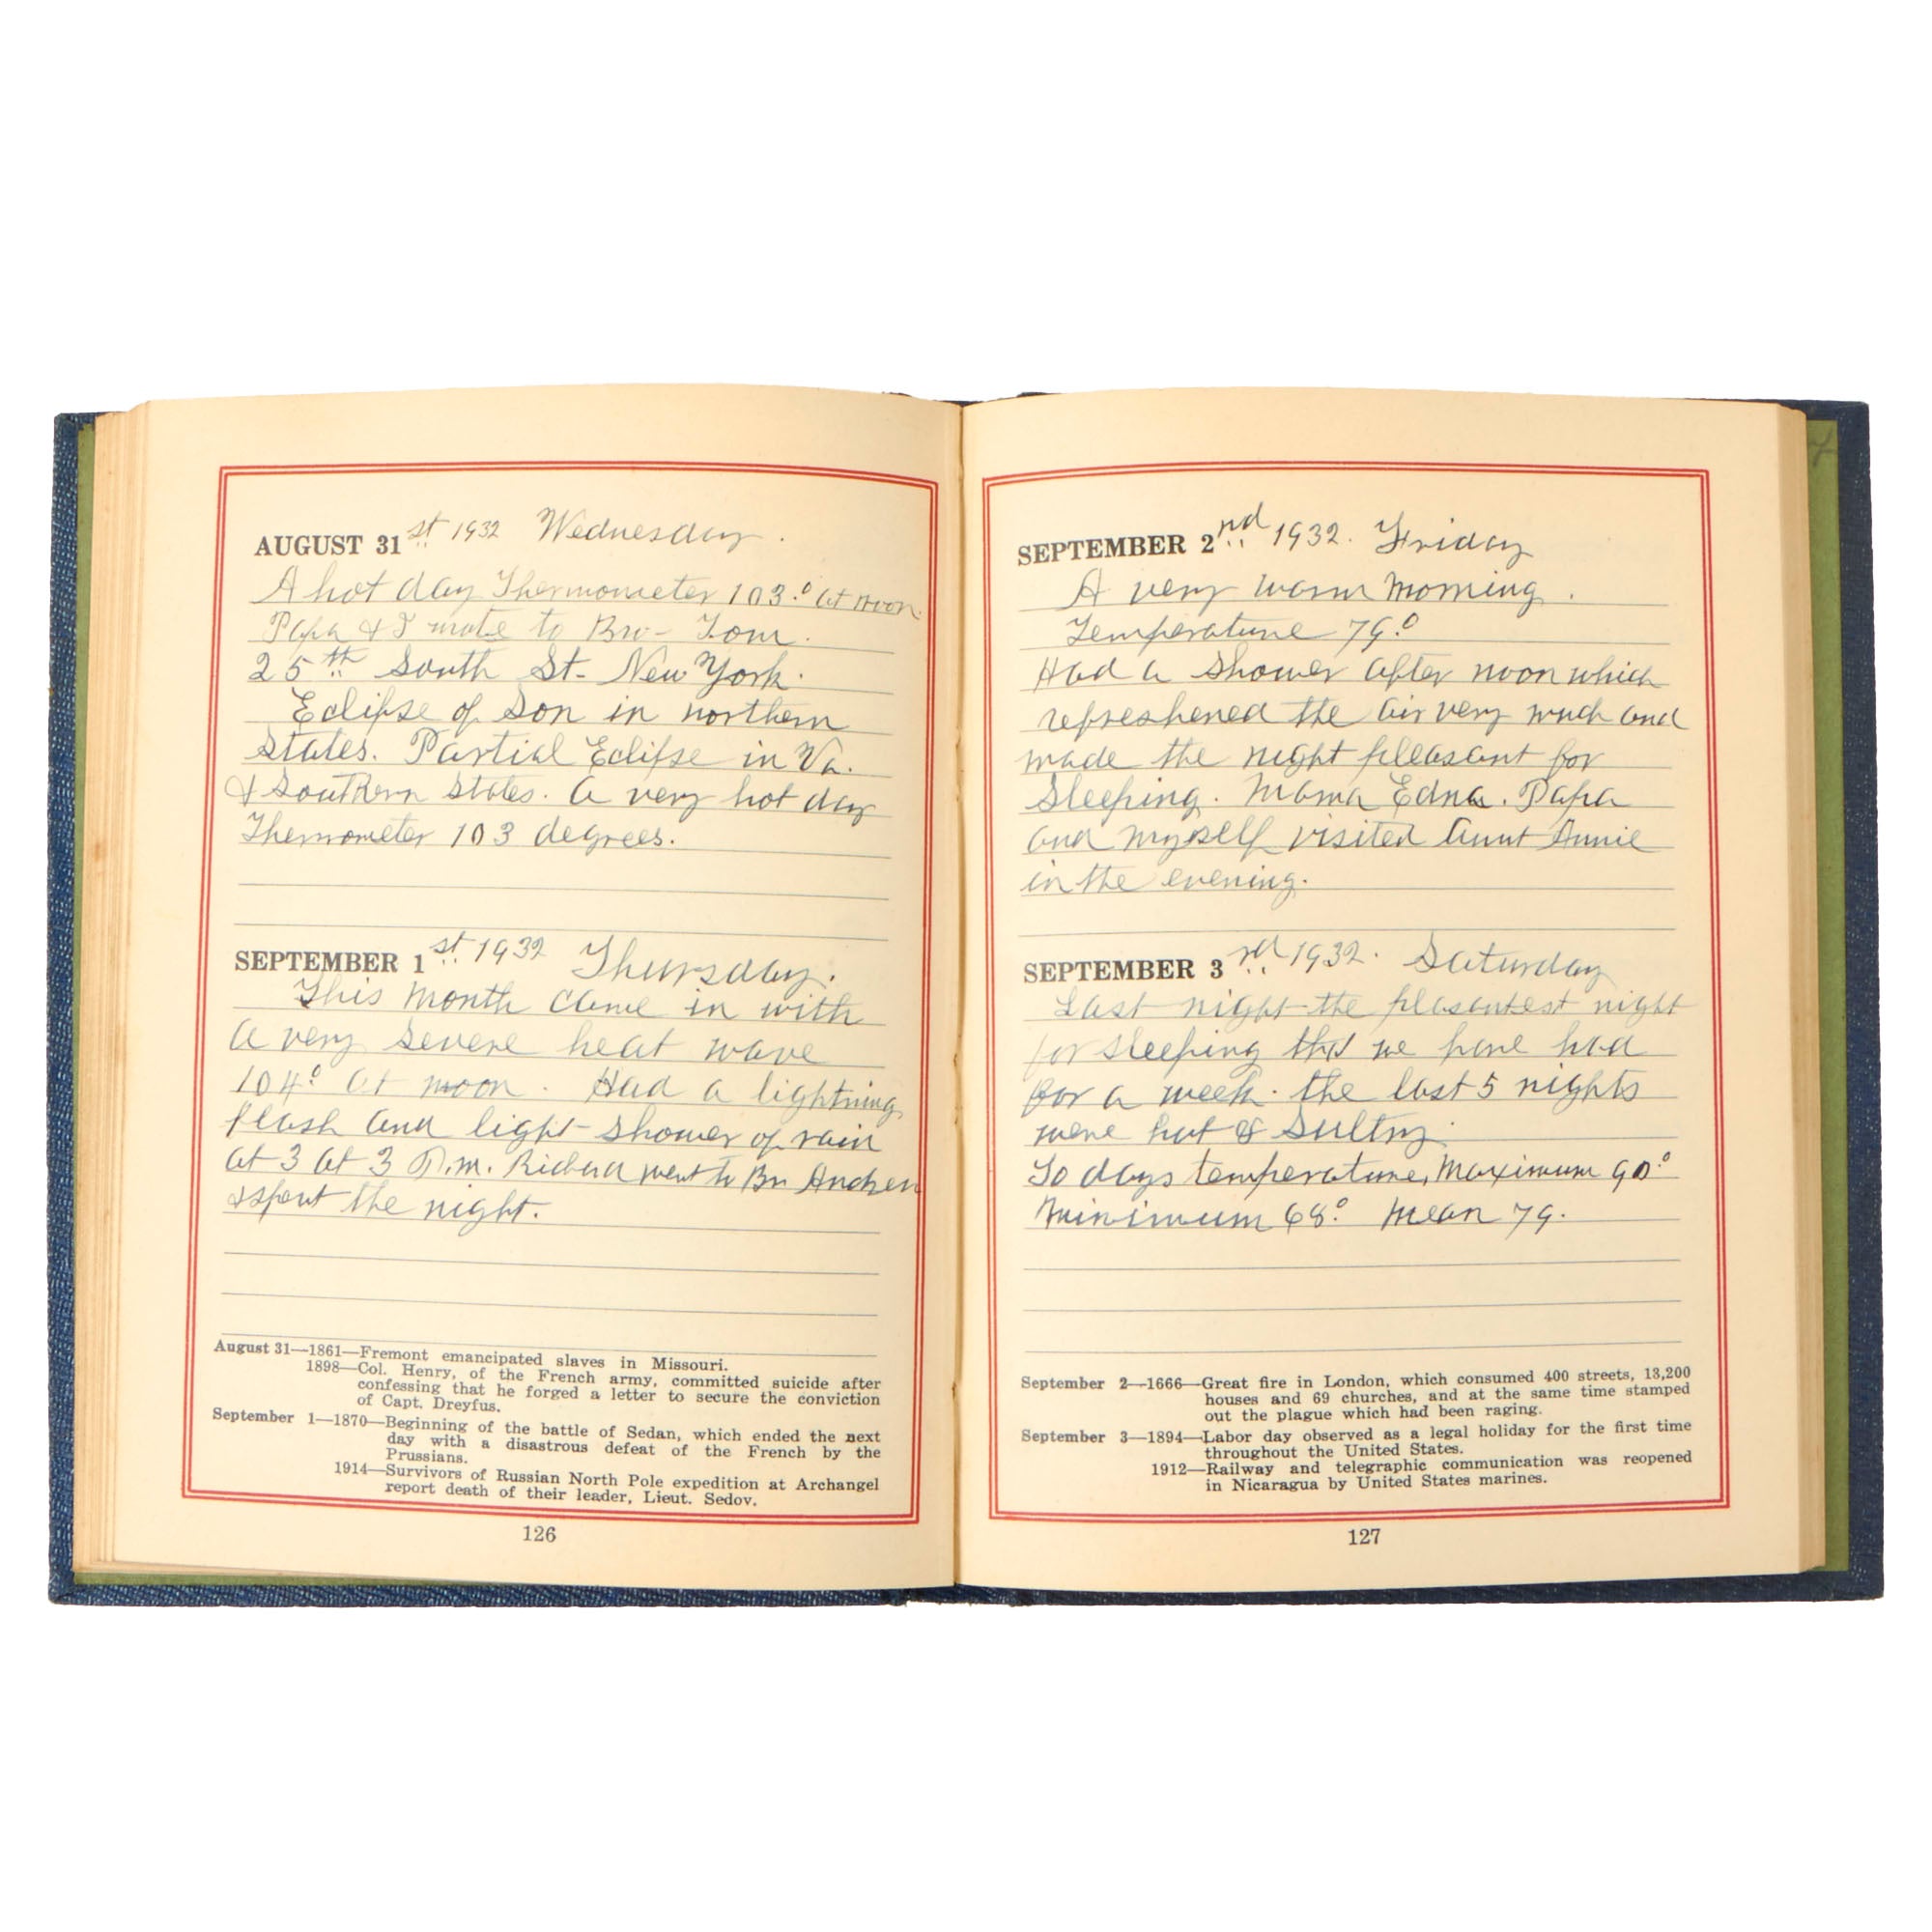 AUGUST 31st 1932 Wednesday.
A hot day Thermometer 103.° at noon.
Papa & I wrote to Bro- Tom.
25th South St- New York.
Eclipse of Son in northern
States. Partial Eclipse in Va.
& Southern States. a very hot day
Thermometer 103 degrees.
SEPTEMBER 1st 1932 Thursday.
This month came in with
a very severe heat wave
104° at noon. Had a lightning
flash and light shower of rain
at 3 at 3 P.m. Richard went to Bro Andrew
& spent the night.
August 31—1861—Fremont emancipated slaves in Missouri.
1898—Col. Henry, of the French army, committed suicide after
confessing that he forged a letter to secure the conviction
of Capt. Dreyfus.
September 1—1870—Beginning of the battle of Sedan, which ended the next
day with a disastrous defeat of the French by the
Prussians.
1914—Survivors of Russian North Pole expedition at Archangel
report death of their leader, Lieut. Sedov.
126
SEPTEMBER 2nd 1932. Friday
A very warm morning.
Temperature 79.°
Had a shower after noon which
refreshened the air very much and
made the night pleasant for
Sleeping. Mama Edna. Papa
and myself visited Aunt Annie
in the evening.
SEPTEMBER 3rd 1932. Saturday
Last night the pleasantest night
for sleeping that we have had
for a week. the last 5 nights
were hot & Sultry.
To days temperature, Maximum 90.°
Minimum 68.° Mean 79.
September 2—1666—Great fire in London, which consumed 400 streets, 13,200
houses and 69 churches, and at the same time stamped
out the plague which had been raging.
September 3—1894—Labor day observed as a legal holiday for the first time
throughout the United States.
1912—Railway and telegraphic communication was reopened
in Nicaragua by United States marines.
127